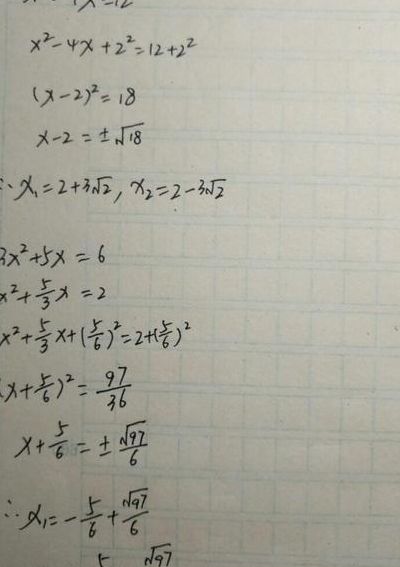 x=12
x²-4x+2²=12+2²
(x-2)²=18
x-2=±√18
∴x₁=2+3√2, x₂=2-3√2
3x²+5x=6
x²+5/3x=2
x²+5/3x+(5/6)²=2+(5/6)²
(x+5/6)²=97/36
x+5/6=±√97/6
∴x₁=-5/6+√97/6
5 √97